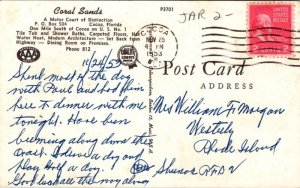 Coral Sands
A Motor Court of Distinction
P. O. Box 504 Cocoa, Florida
One Mile South of Cocoa on U. S. No. 1
Tile Tub and Shower Baths, Carpeted Floors, Hot
Water Heat, Modern Architecture — Set Back from
Highway — Dining Room on Premises.
Phone 812
P3701
JAR 2
NOV 25
PM
1953
Post Card
ADDRESS
11/24/53
Spent most of the day
with Paul and had him
here to dinner with me
tonight. Have been
along down the
coast. I drive a day and
play half a day.
all the way along
Mrs William F. Morgan
Westerly
Rhode Island
RFD 2